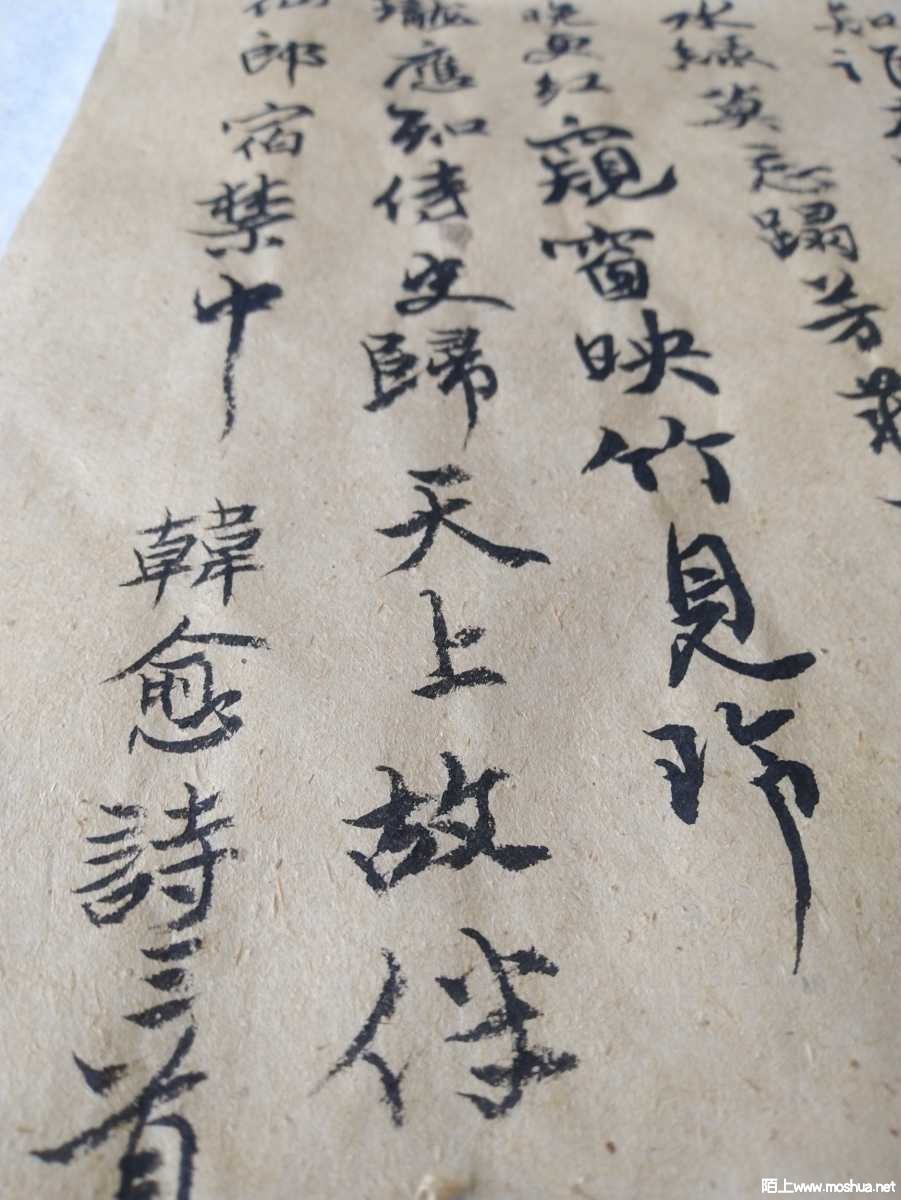 知誰
水緑莫忘蹋芳
晚更紅窺窗映竹見玲
瓏應知侍史歸天上故伴
仙郎宿禁中 韓愈詩三首
陌上www.moshua.net